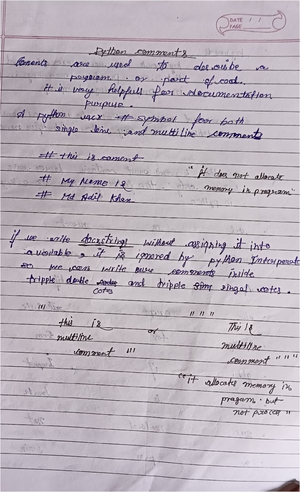 DATE / /
PAGE
Python comments
Coments are used to describe a
pogram or part of code.
It is very helpfull for documentation
purpuse.
A python uses # symbol for both
single line and multiline comments
# this is coment
# My Name is
# Md Adit Khan
"it does not allocate
memory in program"
if we write docstring without assigning it into
a variable, it is ignored by python Interpreter
so we can write our comments inside
tripple double cotes and tripple singal cotes.
''' this is
multiline
comment '''
or
""" This is
multiline
comment """
"it allocates memory in
progam but
not procces"